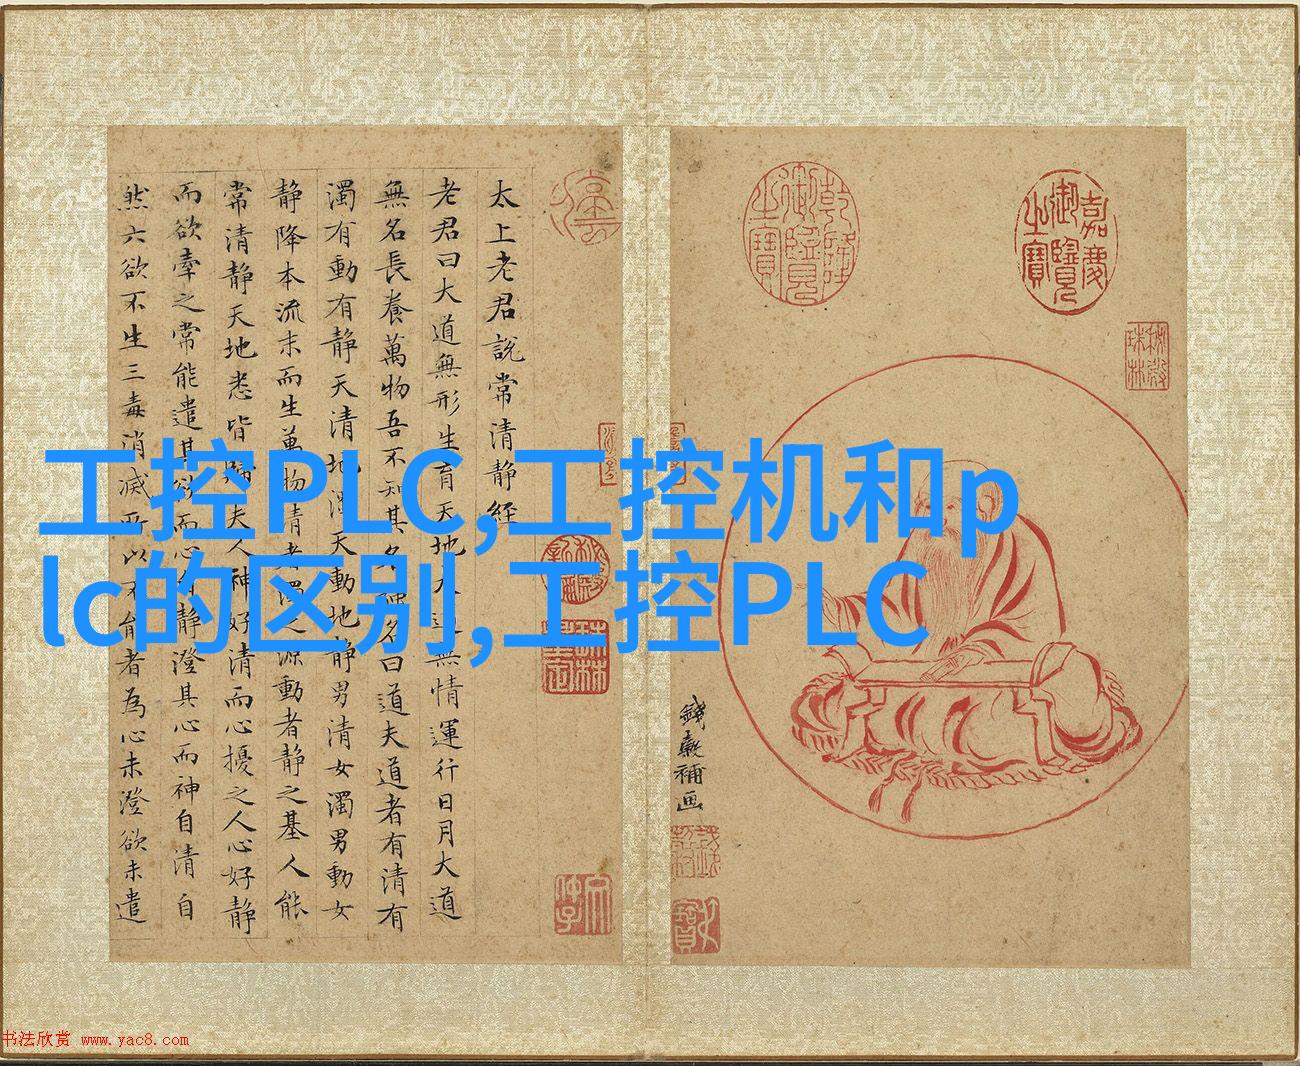 工控PLC,工控机和p
lc的区别,工控PLC
嘉慶御覽之寶
乾隆御覽之寶
秘殿珠林
錢穀補画
太上老君說常清静經
老君曰大道無形生育天地大道無情運行日月大道
無名長養萬物吾不知其名强名曰道夫道者有清有
濁有動有静天清地濁天動地静男清女濁男動女
静降本流末而生萬物清者濁之源動者静之基人能
常清静天地悉皆歸夫人神好清而心擾之人心好静
而欲牽之常能遣其欲而心自静澄其心而神自清自
然六欲不生三毒消滅所以不能者為心未澄欲未遣
书法欣赏 www.yac8.com